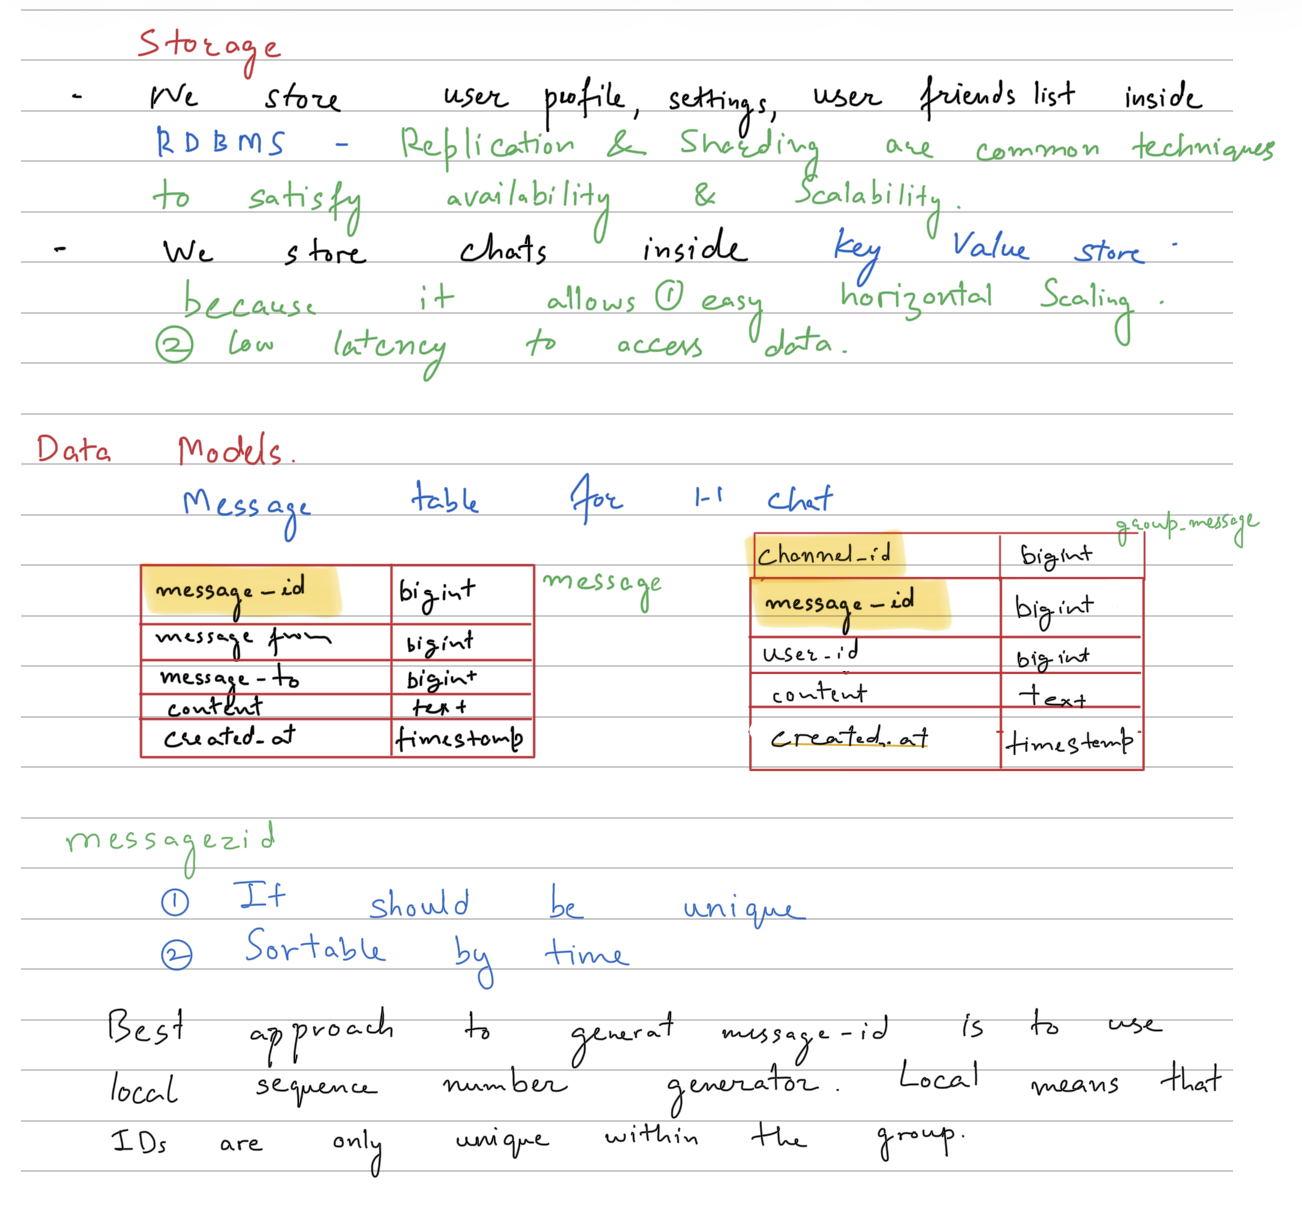 Storage
- We store user profile, settings, user friends list inside
RDBMS - Replication & Sharding are common techniques
to satisfy availability & Scalability.
- We store chats inside key Value store -
because it allows ① easy horizontal Scaling.
② low latency to access data.
Data Models.
Message table for 1-1 chat
group_message
message
message-id bigint
message from bigint
message-to bigint
content text
created_at timestamp
channel_id bigint
message-id bigint
user-id bigint
content text
created_at timestemp
messagezid
① It should be unique
② Sortable by time
Best approach to generat message-id is to use
local sequence number generator. Local means that
IDs are only unique within the group.